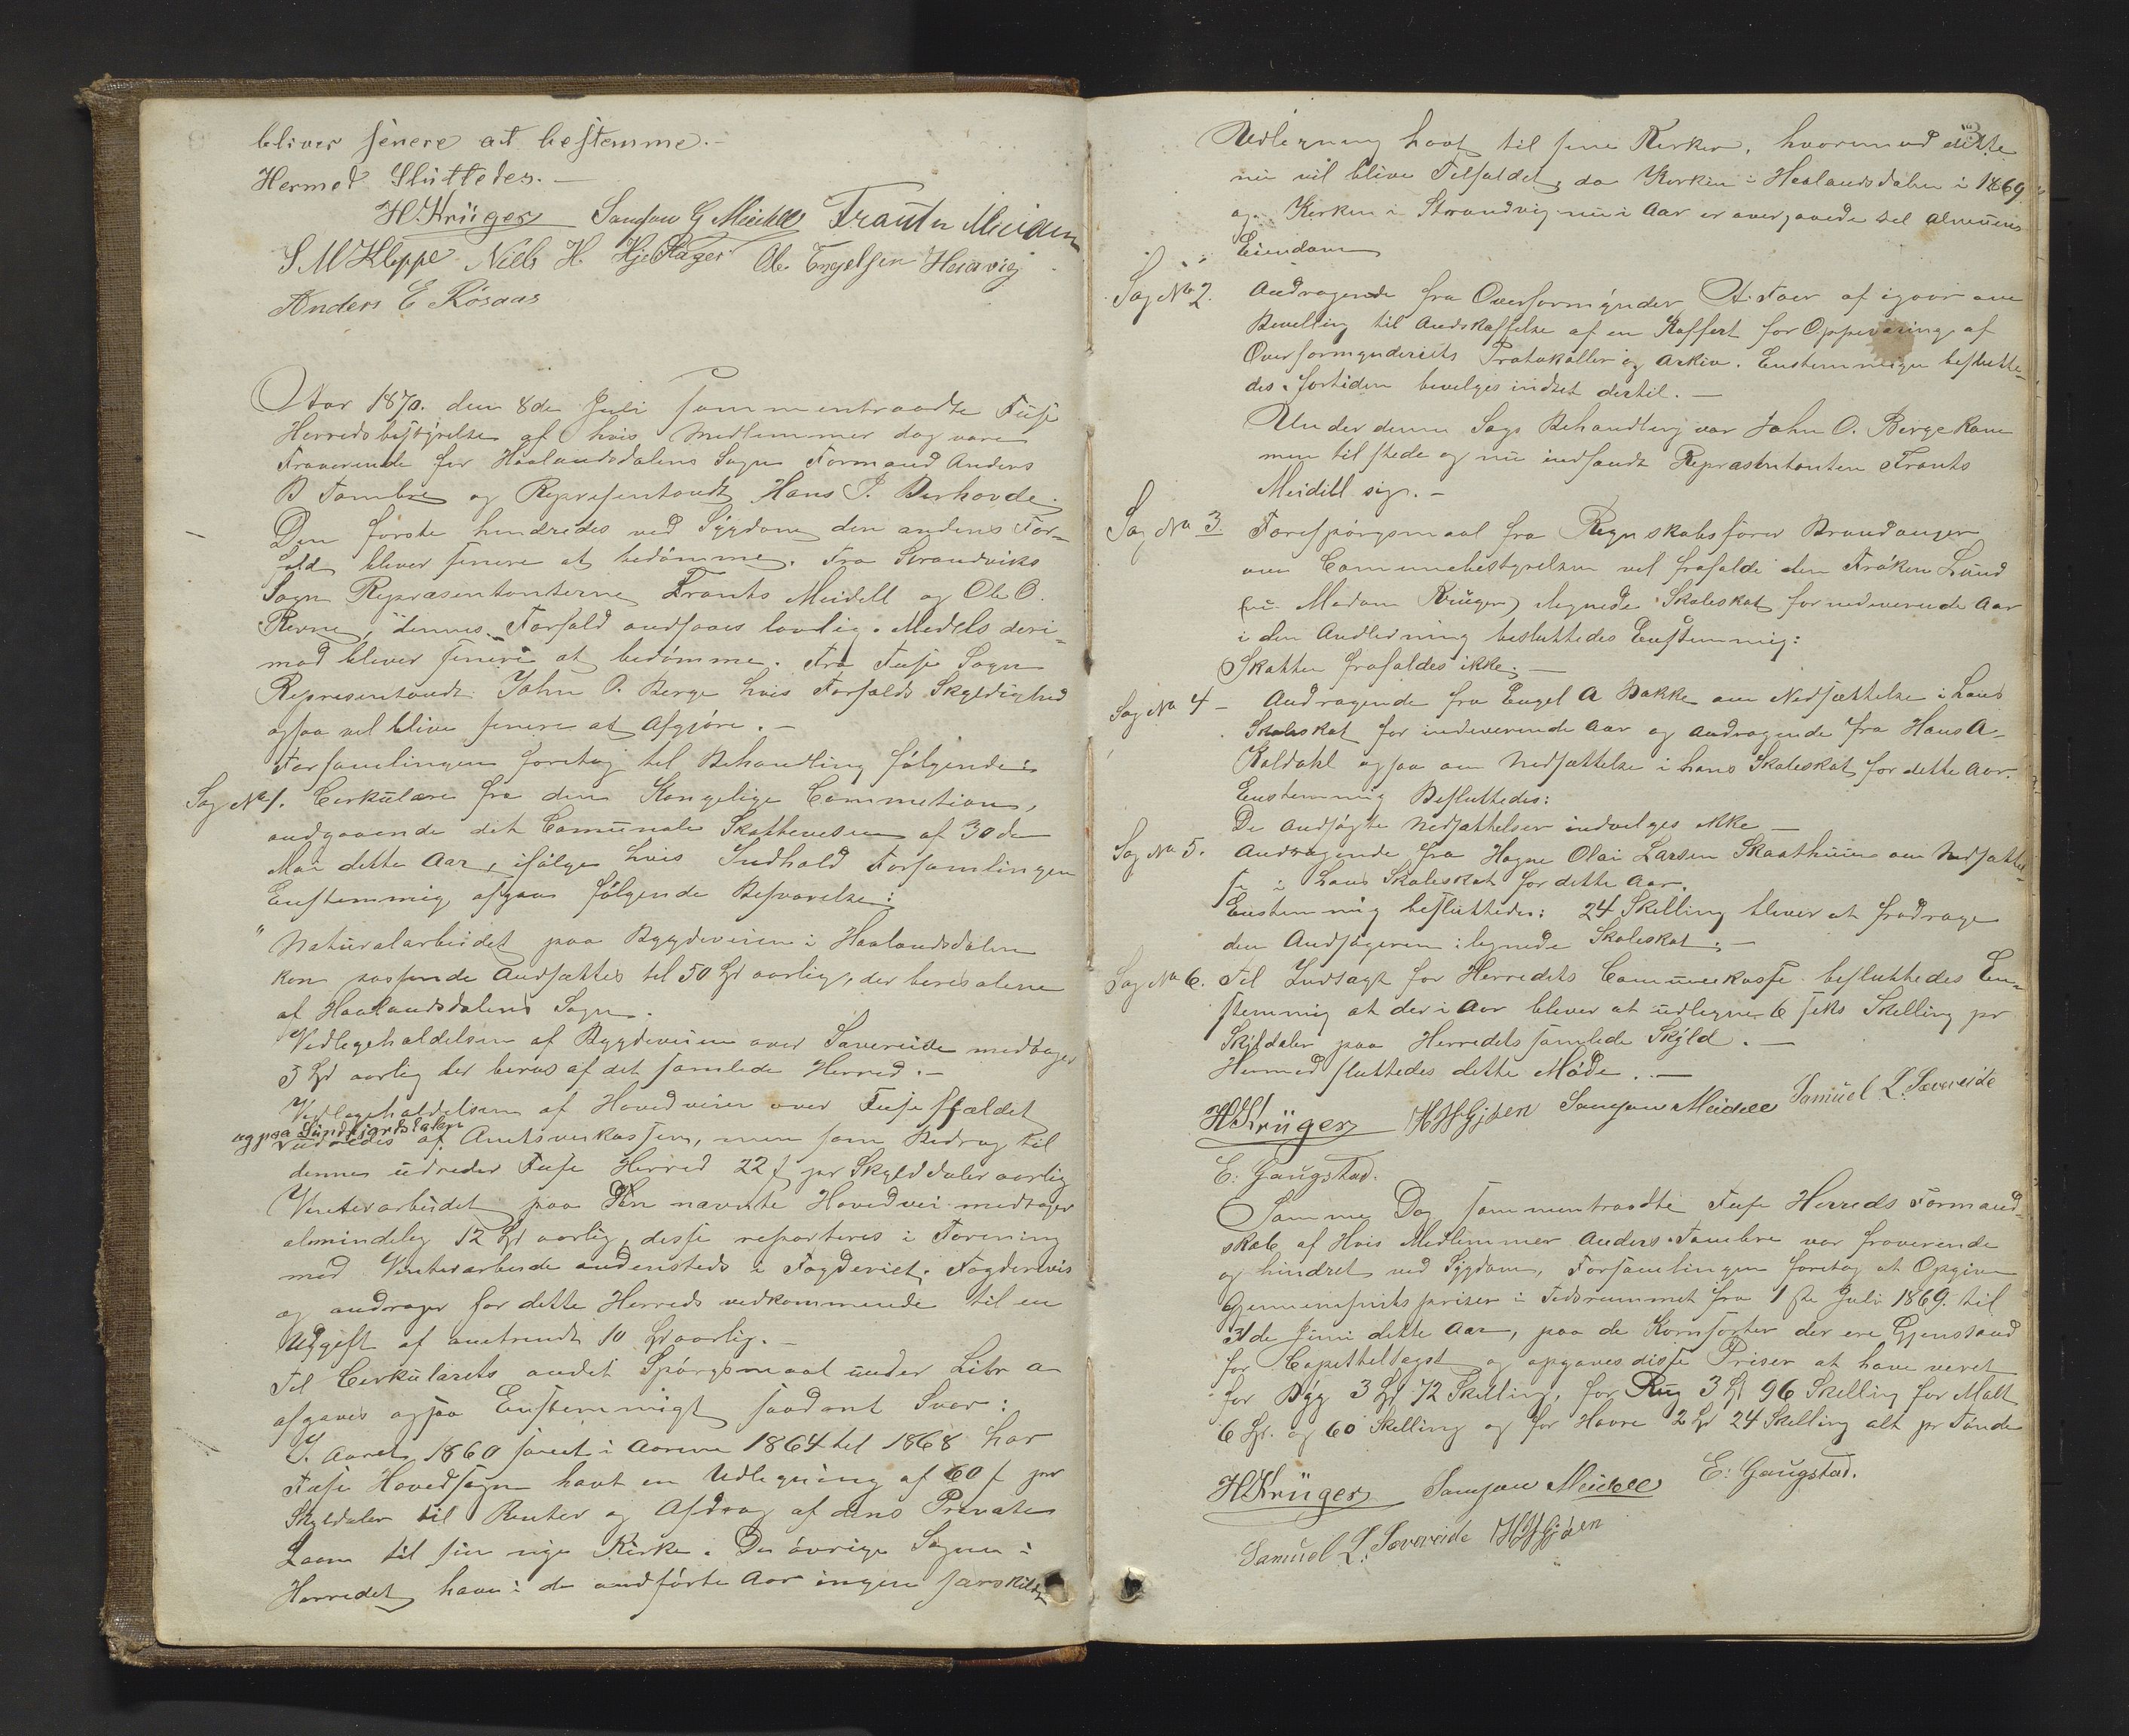 bliver senere at bestemme.-
Hermed Sluttedes.-
HKrüger Samson G Meidell Frantz Meidell
S M Kleppe Niels H. Hjelhager Ole Engelsen Henrvig
Anders E Rosaas
Aar 1870. den 8de Juli sammentraadte Fuse
Herredsbestyrelse af hvis Medlemmer dog vare
Fraverende for Haalandsdalens Sogn Formand Anders
B Tombre og Representandt Hans P. Berhovde.
Den første hindredes ved Sygdom den andens For-
fald bliver senere at bedømme. Fra Strandviks
Sogn Repræsentanterne Frants Meidell og Ole O.
Revne, dennes Forfald andsaaes lovlig. Medels deri-
mod bliver senere at bedømme. Fra Fuse Sogn
Representandt John O. Berge hvis Forfalds Skyldighed
ogsaa vil blive senere at Afgjøre.-
Forsamlingen foretog til Behandling følgende:
Sag No 1. Cirkulære fra den Kongelige Commetion,
andgaaende det Comunale Skattevesen af 30de
Mai dette Aar, ifølge hvis Indhold Forsamlingen
Enstemmig afgav følgende Besvarelse:
" Naturalarbeidet paa Bygdeveien i Haalandsdalen
kan passende Andsættes til 50 Spd aarlig, der beres alene
af Haalandsdalens Sogn.
Vedlegeholdelsen af Bygdeveien over Sævereide medtager
5 Spd aarlig der beres af det samlede Herred.-
Vedlegeholdelsen af Hovedveien over Fuse ffældet
og paa Sundfjordstalen
Udredes af Amtsveikassen, men som Bidrag til
dennes udreder Fuse Herred 22 f pr Skylddaler aarlig
Vinterarbeidet paa Den nævnte Hovedvei medtager
almindelig 12 Spd aarlig, disse reparteres i Forening
med Vinterarbeide andensteds i Fogderiet. Fogderivis
og andrager for dette Herreds vedkommende til en
Udgift af omtrendt 10 Spd aarlig.-
Til Cirkulærets andet Spørgsmaal under Litr a
afgaves ogsaa Enstemmigt saadant Svar:
I Aaret 1860 samt i Aarene 1864 til 1868 har
Fuse Hovedsogn havt en Udlegning af 60 f pr
Skyldaler til Renter og Afdrag af dens Private
Laan til sin nye Kirke. De øvrige Sogne i
Herredet have i de andførte Aar ingen særskildt
3
Udlegning havt til sine Kirker, hvorimod dette
nu vil blive Tilfældet, da Kirken i Haalandsdalen i 1869
og Kirken i Strandvig nu i Aar er overgaaede til Almuens
Eiendom
Sag No 2. Andragende fra Overformynder A. Foer af igaar om
Bevelling til Andskaffelse af en Koffert for Oppevaring af
Overformynderiets Protokoller og Arkiv. Enstemmigen beslutte-
des: fortiden bevelges indtet dertil.-
Under denne Sags Behandling var John O. Berge kom
men tilstede og nu indfandt Repræsentanten Frants
Meidell sig.-
Sag No 3. Forespørgsmaal fra Regnskabsfører Brandanger
om Communebestyrelsen vil frafalde den Frøken Lund
(nu Madam Krüger) ilegnede Skoleskat for nedeverende Aar
i den Andledning besluttedes Enstemmig:
Skatten frafaldes ikke.-
Sag No 4 - Andragende fra Engel A Bakke om Nedsættelse i hans
Skoleskat for indeverende Aar og andragende fra Hans A-
Koldahl ogsaa om Nedsættelse i hans Skoleskat for dette Aar.
Enstemmig Besluttedes:
De andsøgte Nedsættelser indvelges ikke-
Sag No 5. Andragende fra Hogne Olai Larsen Skaathuun om Nedsættel-
se i hans Skoleskat for dette Aar.
Enstemmig besluttedes: 24 Skelling bliver at fradrage
den Andsøgeren ilegnede Skoleskat.-
Sag No 6. Til Indtægt for Herredets Communekasse besluttedes En-
stemmig at der i Aar bliver at udlegnes 6 seks Skelling pr
Skyldaler paa Herredets samlede Skyld.-
Hermed sluttedes dette Møde.-
HKrüger HHGjøen Samson Meidell Samuel L. Sævereide
E. Gaugstad.
Samme Dag sammentraadte Fuse Herreds Formand-
skab af Hvis Medlemmer Anders Tombre var fraverende
og hindret ved Sygdom, Forsamlingen foretog at Opgive
Gjennemsnits priser i Tidsrummet fra 1ste Juli 1869. til
30de Juni dette Aar, paa de Kornsorter der ere Gjenstand
for Capitteltagst og opgaves disse Priser at have veret
for Byg 3 Spd 72 Skelling, for Rug 3 Spd 96 Skelling for Malt
6 Spd. og 60 Skelling og for Havre 2 Spd 24 Skelling alt pr Tønde
HKrüger Samson Meidell E. Gaugstad.
Samuel L. Sævereide HHGjøen